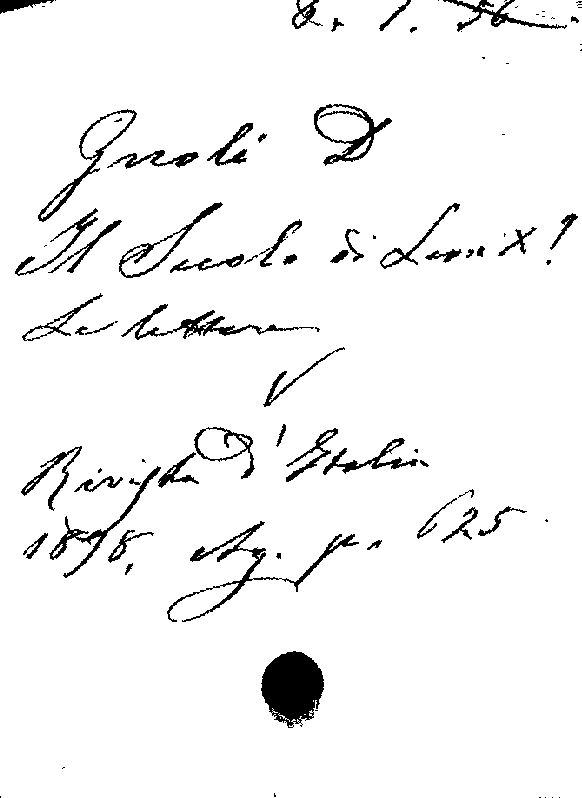 2. 1. 56.
Gnoli D
Il Secolo di Leone X?
Le lettere
Rivista d'Italia
1898, Ag. p. 625